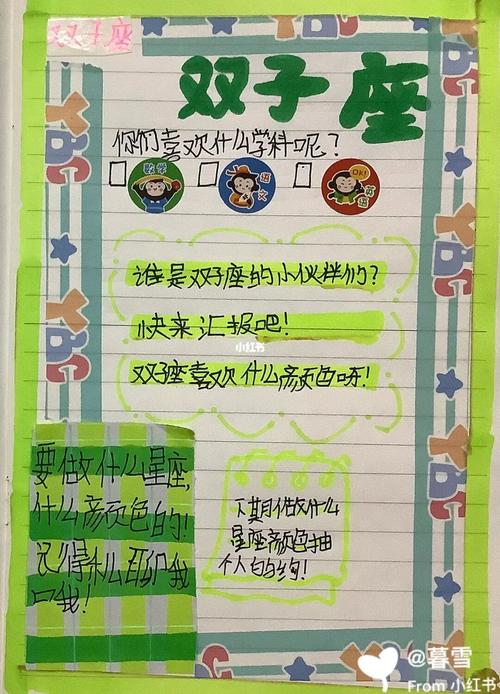 双子座
双子座
你们喜欢什么学科呢？
数学
语文
OK!
英语
谁是双子座的小伙拌们？
快来汇报吧！
小红书
双子座喜欢什么颜色呀！
要做什么星座,
什么颜色的！
记得
我！
下期做什么
星座颜色抽
个人的哟！
YBC
YBC
YBC
YBC
YBC
YBC
@暮雪
From 小红书